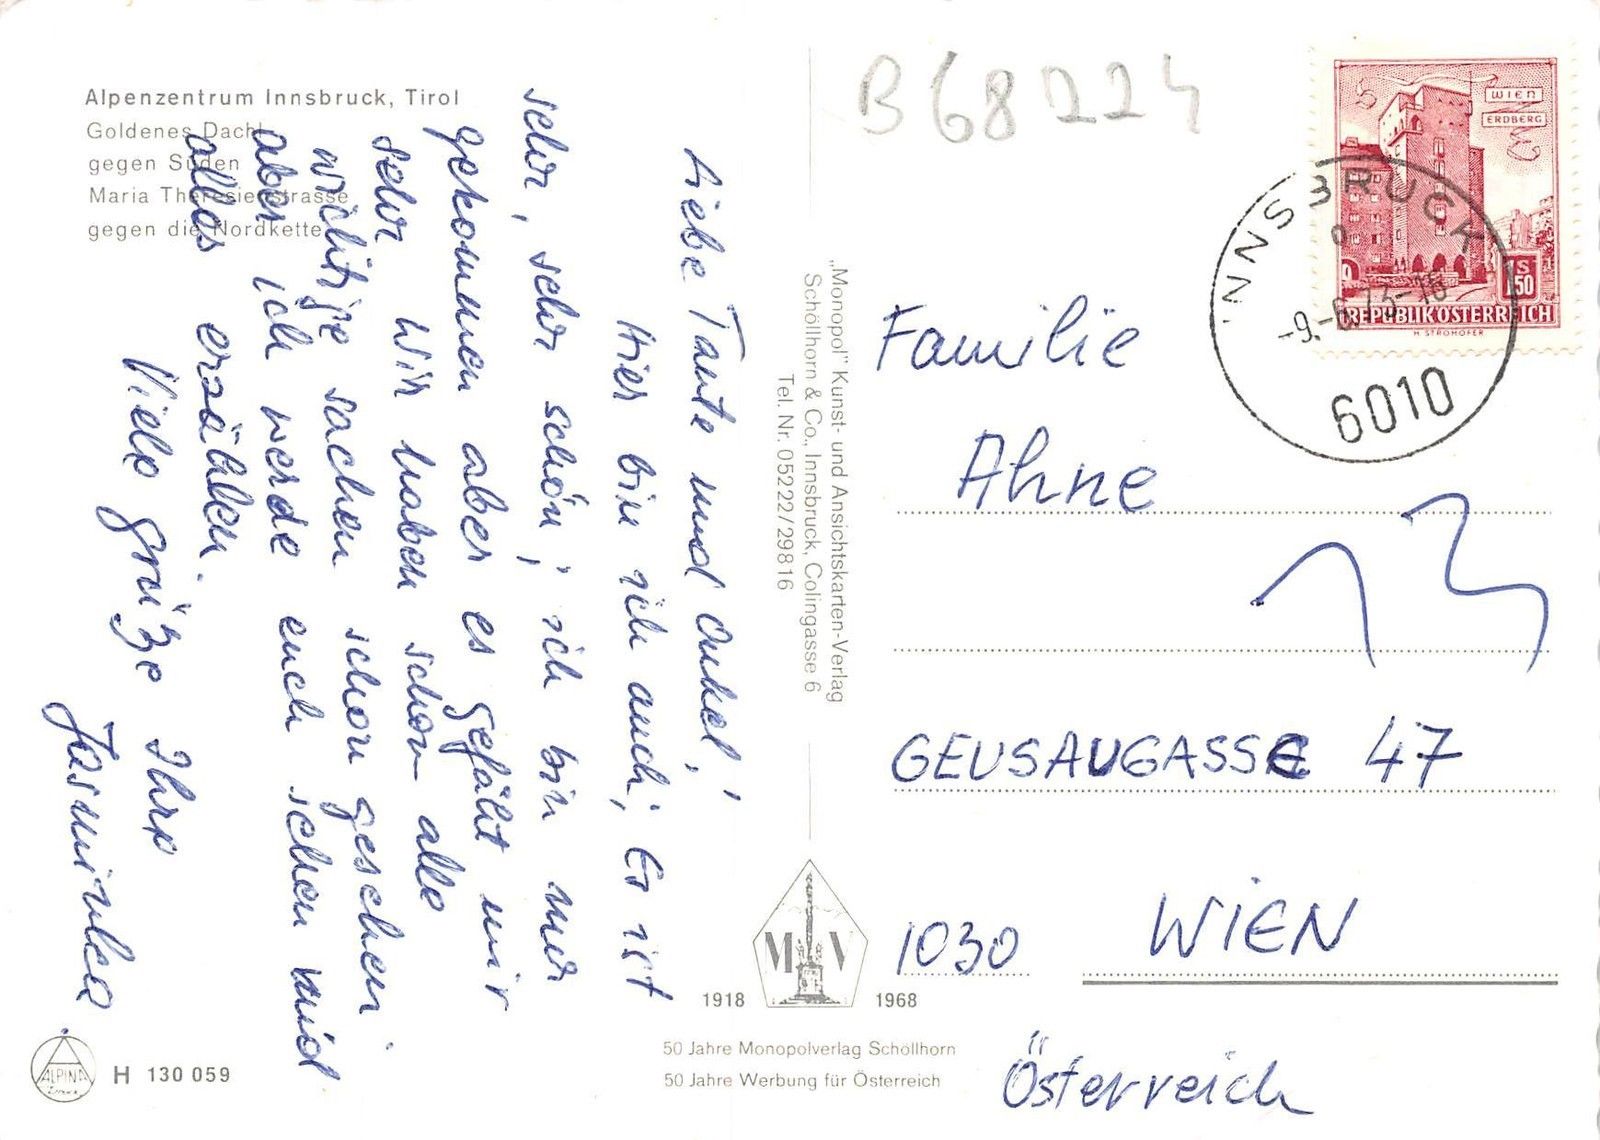 Alpenzentrum Innsbruck, Tirol
Goldenes Dachl
gegen Süden
Maria Theresienstrasse
gegen die Nordkette
Liebe Tante und Onkel,
Hier bin ich auch; Es ist
sehr, sehr schön; ich bin nur
gekommen aber es gefällt mir
sehr wir haben schon alle
wichtige sachen schon geschen
aber ich werde euch sehen und
alles erzählen.
Viele Grüße Ihre
Jasminka.
"Monopol" Kunst- und Ansichtskarten-Verlag
Schöllhorn & Co., Innsbruck, Colingasse 6
Tel. Nr. 05222/29816
B 68224
WIEN
ERDBERG
S 1.50
REPUBLIK ÖSTERREICH
H. STROHOFER
INNSBRUCK
-9.-6.73-18
6010
Familie
Ahne
GEUSAUGASSE 47
1030 WIEN
Österreich
M V
1918 1968
50 Jahre Monopolverlag Schöllhorn
50 Jahre Werbung für Österreich
ALPINA
Druck
H 130 059